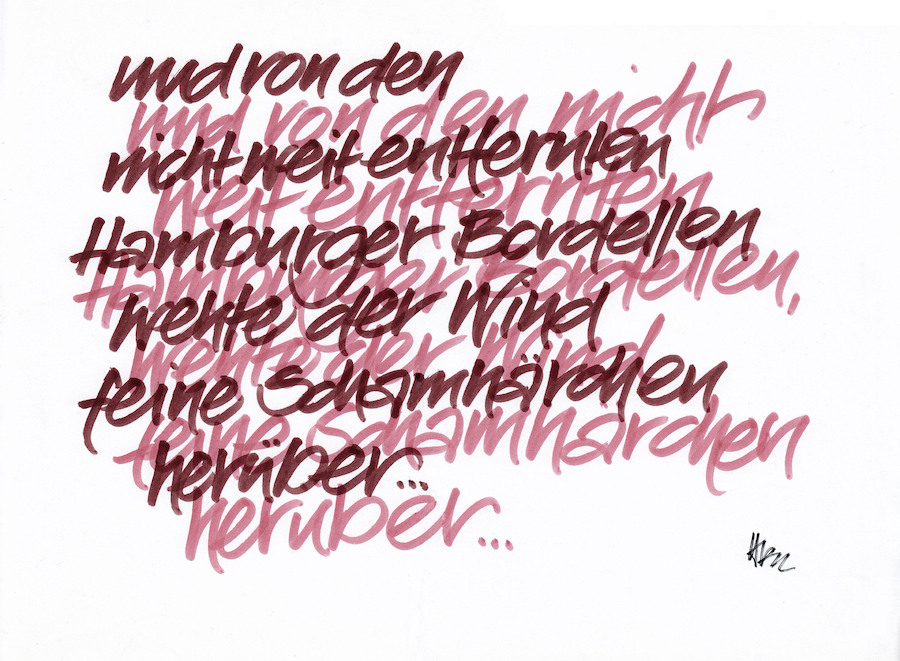 und von den
und von den nicht
nicht weit entfernten
weit entfernten
Hamburger Bordellen
Hamburger Bordellen,
wehte der Wind
wehte der Wind
feine Schamhärchen
feine Schamhärchen
herüber...
herüber...